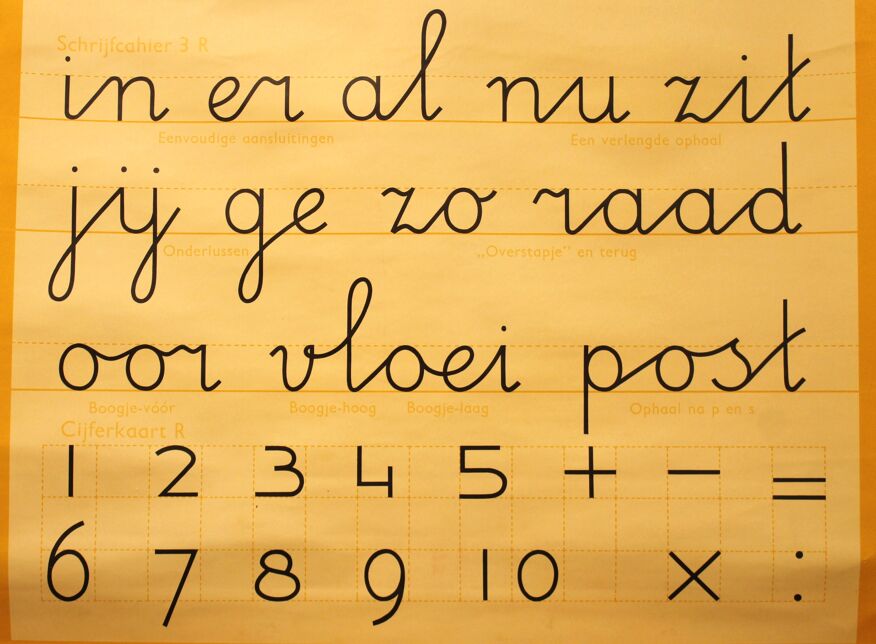 Schrijfcahier 3 R
in er al nu zit
Eenvoudige aansluitingen Een verlengde ophaal
jij ge zo raad
Onderlussen „Overstapje” en terug
oor vloei post
Boogje-vóór Boogje-hoog Boogje-laag Ophaal na p en s
Cijferkaart R
1 2 3 4 5 + − =
6 7 8 9 10 × :